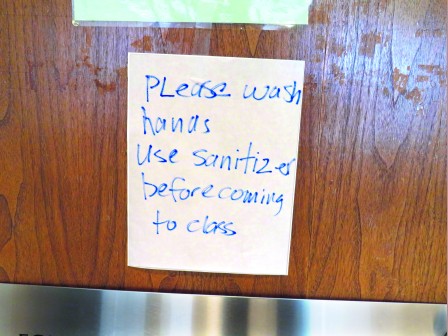 PLease wash
hands
Use sanitizer
before coming
to class